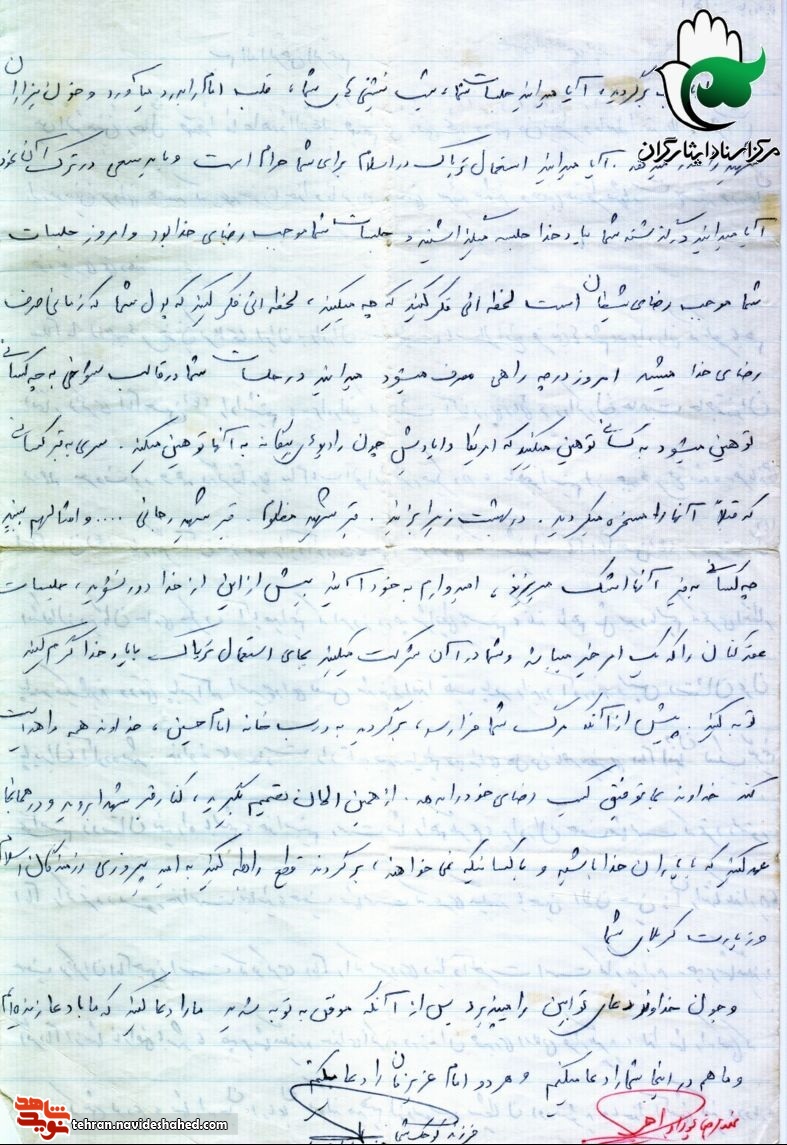 مرکز اسناد ایثارگران
برگردید، آیا میدانید جلسات شما، شب نشینی های شما، قلب امام را بدرد میآورد و خون هزاران
شهید را میدهد. آیا میدانید استعمال تریاک در اسلام برای شما حرام است و باید سعی در ترک آن نمود
آیا میدانید در گذشته شما با یاد خدا جلسه میگذاشتید و جلسات شما موجب رضای خدا بود و امروز جلسات
شما موجب رضای شیطان است لحظه ائی فکر کنید که چه میکنید، لحظه ائی فکر کنید که پول شما که زمانی صرف
رضای خدا میشد امروز در چه راهی مصرف میشود میدانید در جلسات شما در قالب شوخی به چه کسانی
توهین میشود به کسانی توهین میکنید که امریکا و ایادیش چون رادیوهای بیگانه به آنها توهین میکند. سری به قبر کسانی
که قبلاً آنها را مسخره میکردید. در بهشت زهرا بزنید. قبر شهید مظلوم. قبر شهید رجائی .... و امثالهم ببینید
چه کسانی به قبر آنها اشک میریزند، امیدوارم به خود آئید بیش از این از خدا دور نشوید، جلسات
عقدکنان را که یک امر خیر میباشد و شما در آن شرکت میکنید بجای استعمال تریاک با یاد خدا گرم کنید
توبه کنید. پیش از آنکه مرگ شما فرا رسد، برگردید به درب خانه امام حسین، خداوند همه را هدایت
کند خداوند بما توفیق کسب رضای خود را بدهد. از همین الان تصمیم بگیرید، کنار قبر شهدا بروید و در همانجا
عهد کنید که با یاران خدا باشید و با کسانیکه نمی خواهند، برگردند قطع رابطه کنید به امید پیروزی رزمندگان اسلام
و زیارت کربلای شما
و چون خداوند دعای توابین را میپذیرد پس از آنکه موفق به توبه شدید ما را دعا کنید که ما با دعا زنده ایم
و ما هم در اینجا شما را دعا میکنیم و هر دو امام عزیزمان را دعا میکنیم
فرزند کوچک شما
نوید شاهد
tehran.navideshahed.com